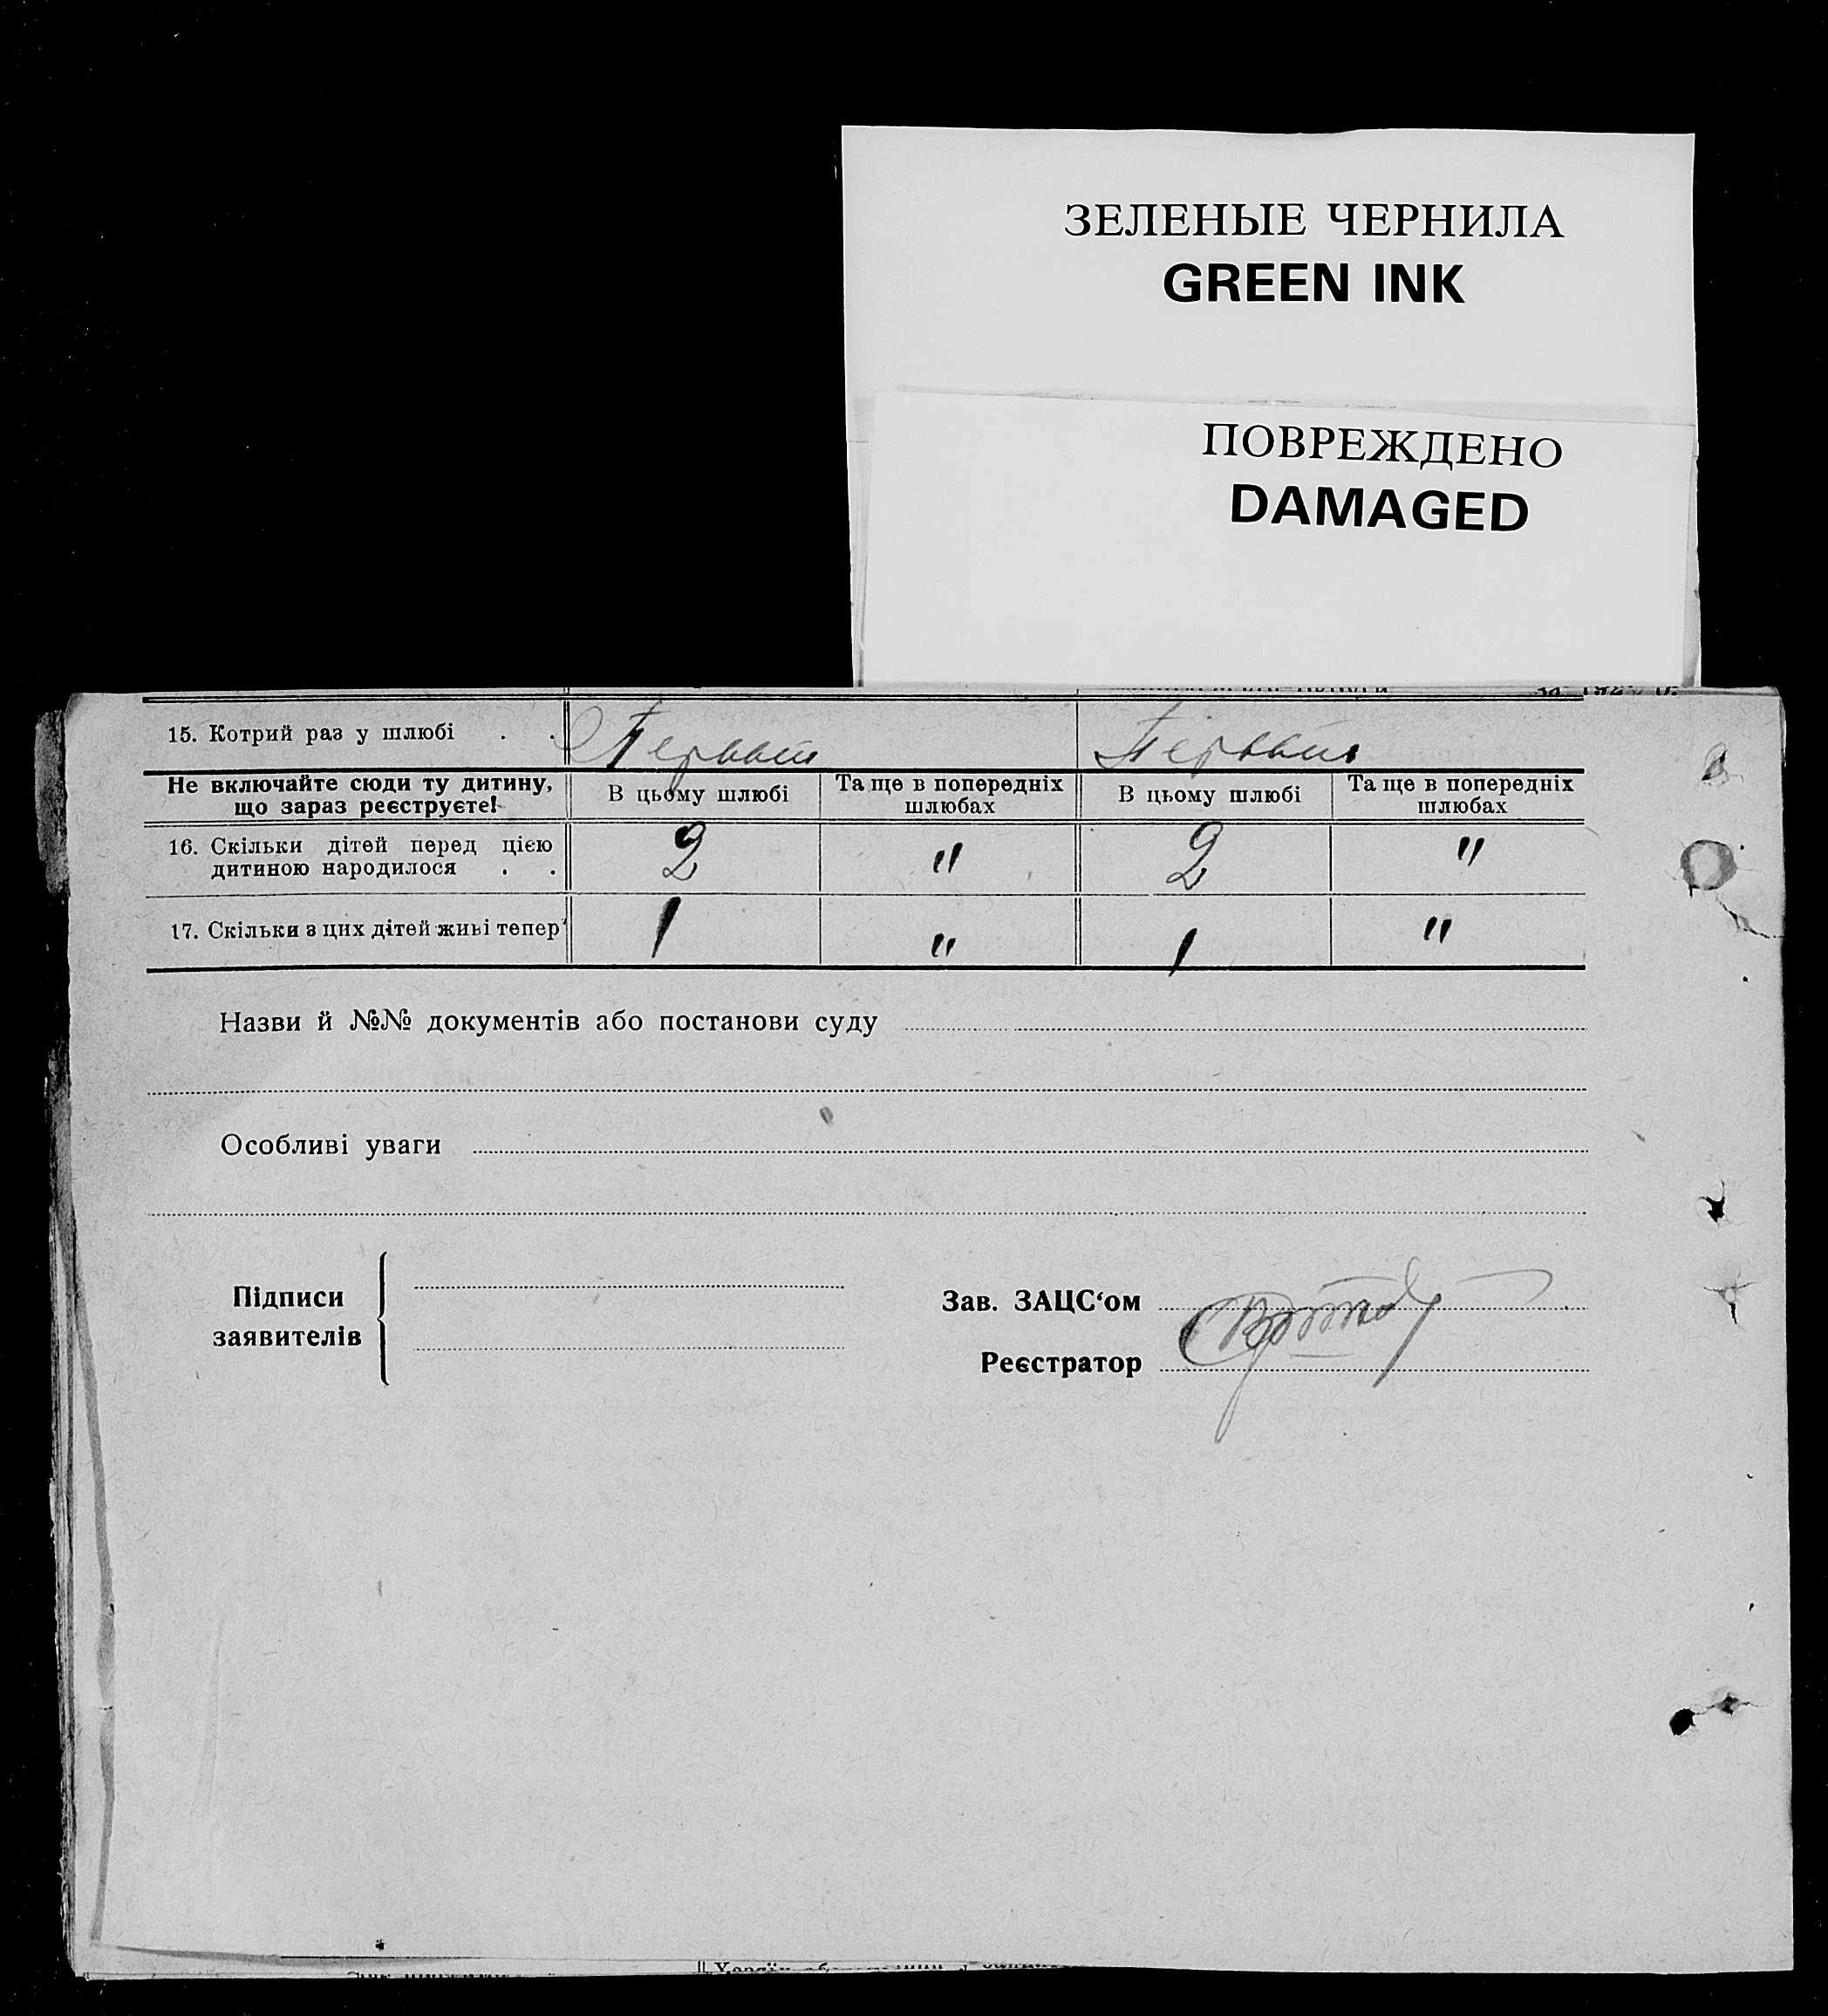 ЗЕЛЕНЫЕ ЧЕРНИЛА
GREEN INK
ПОВРЕЖДЕНО
DAMAGED
15. Котрий раз у шлюбі . . Первый Первый
Не включайте сюди ту дитину, що зараз реєструєте!
В цьому шлюбі
Та ще в попередніх шлюбах
В цьому шлюбі
Та ще в попередніх шлюбах
16. Скільки дітей перед цією
дитиною народилося . . 2 " 2 "
17. Скільки з цих дітей живі тепер 1 " 1 "
Назви й №№ документів або постанови суду
Особливі уваги
Підписи
заявителів
Зав. ЗАЦС‘ом
Реєстратор